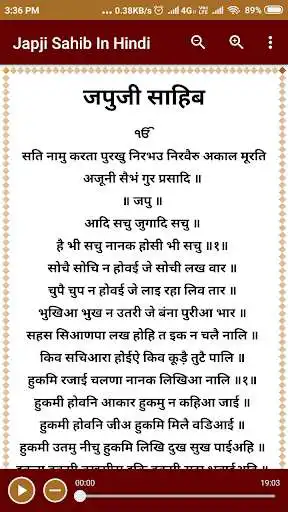 3:36 PM ... 0.38KB/s 4G VoLTE 89%
Japji Sahib In Hindi
जपुजी साहिब
ੴ
सति नामु करता पुरखु निरभउ निरवैरु अकाल मूरति
अजूनी सैभं गुर प्रसादि ॥
॥ जपु ॥
आदि सचु जुगादि सचु ॥
है भी सचु नानक होसी भी सचु ॥१॥
सोचै सोचि न होवई जे सोची लख वार ॥
चुपै चुप न होवई जे लाइ रहा लिव तार ॥
भुखिआ भुख न उतरी जे बंना पुरीआ भार ॥
सहस सिआणपा लख होहि त इक न चलै नालि ॥
किव सचिआरा होईऐ किव कूड़ै तुटै पालि ॥
हुकमि रजाई चलणा नानक लिखिआ नालि ॥१॥
हुकमी होवनि आकार हुकमु न कहिआ जाई ॥
हुकमी होवनि जीअ हुकमि मिलै वडिआई ॥
हुकमी उतमु नीचु हुकमि लिखि दुख सुख पाईअहि ॥
00:00
19:03